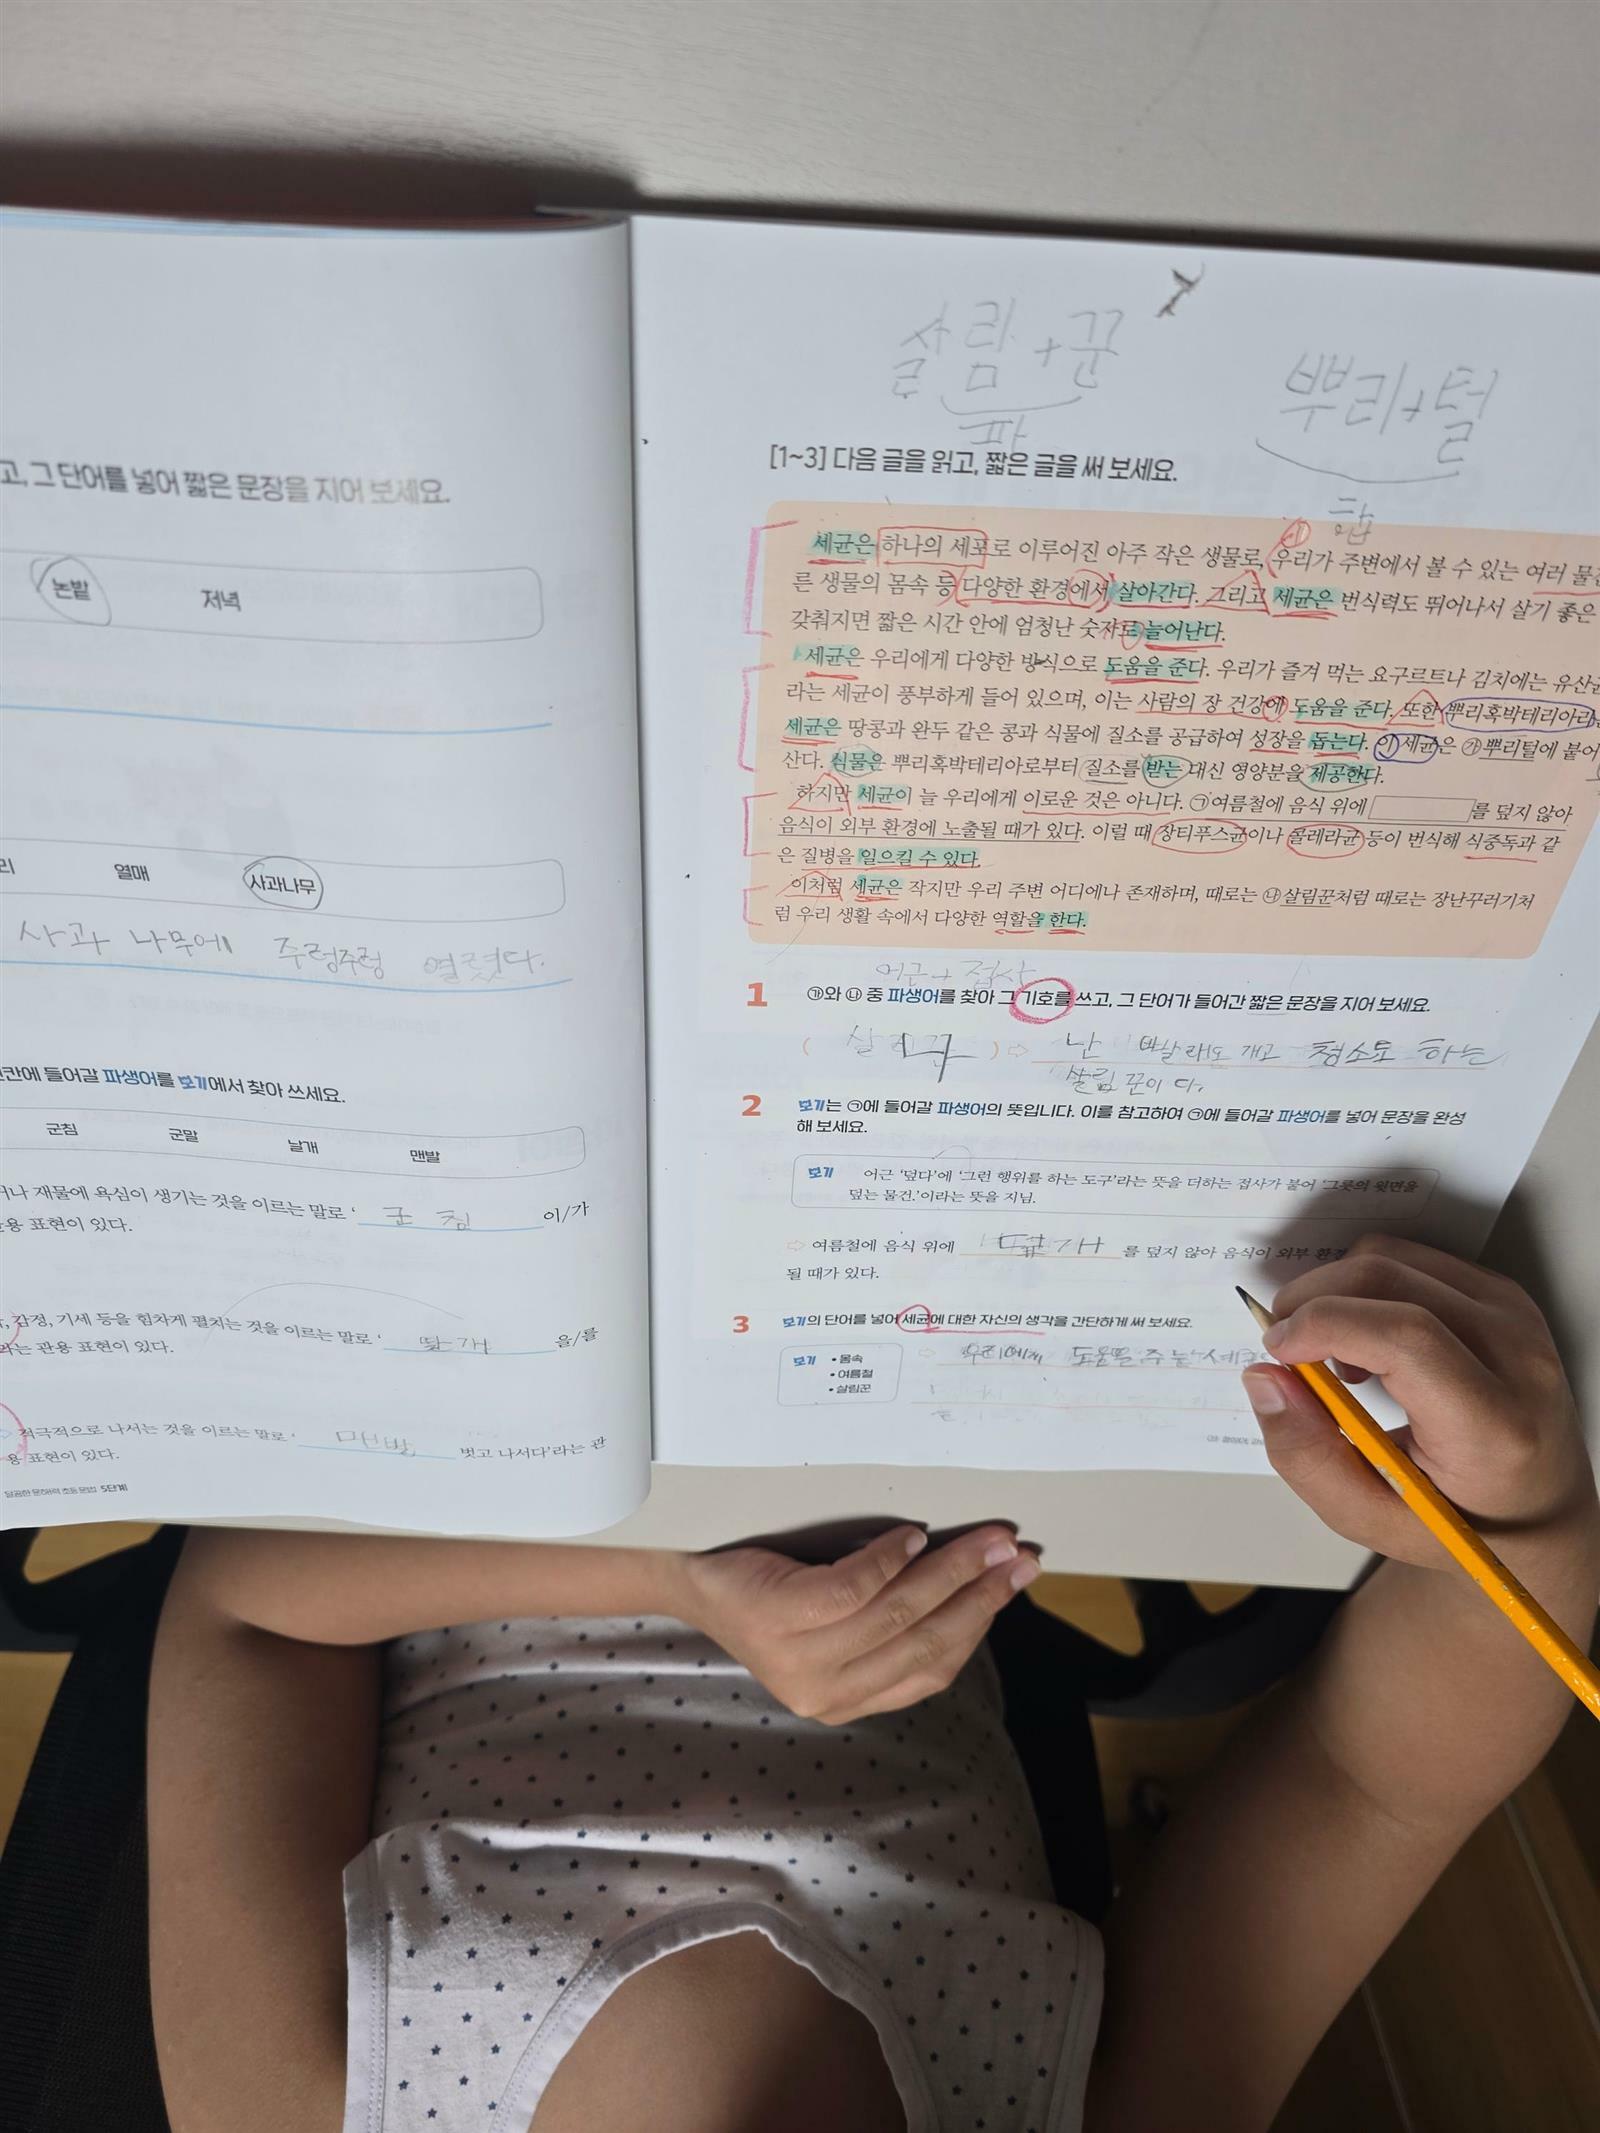 고, 그 단어를 넣어 짧은 문장을 지어 보세요.
논밭 저녁
리 열매 사과나무
사과 나무에 주렁주렁 열렸다.
빈칸에 들어갈 파생어를 보기에서 찾아 쓰세요.
군침 군말 날개 맨발
거나 재물에 욕심이 생기는 것을 이르는 말로 ' 군침 이/가
관용 표현이 있다.
, 감정, 기세 등을 힘차게 펼치는 것을 이르는 말로 ' 을/를
라는 관용 표현이 있다.
적극적으로 나서는 것을 이르는 말로 ' 맨발 벗고 나서다'라는 관
용 표현이 있다.
달곰한 문해력 초등 문법 5단계
살림+꾼
파
뿌리+털
합
[1~3] 다음 글을 읽고, 짧은 글을 써 보세요.
세균은 하나의 세포로 이루어진 아주 작은 생물로, 우리가 주변에서 볼 수 있는 여러 물
른 생물의 몸속 등 다양한 환경에서 살아간다. 그리고 세균은 번식력도 뛰어나서 살기 좋은
갖춰지면 짧은 시간 안에 엄청난 숫자로 늘어난다.
세균은 우리에게 다양한 방식으로 도움을 준다. 우리가 즐겨 먹는 요구르트나 김치에는 유산균
라는 세균이 풍부하게 들어 있으며, 이는 사람의 장 건강에 도움을 준다. 또한 뿌리혹박테리아라는
세균은 땅콩과 완두 같은 콩과 식물에 질소를 공급하여 성장을 돕는다. 이 세균은 ㉮뿌리털에 붙어
산다. 식물은 뿌리혹박테리아로부터 질소를 받는 대신 영양분을 제공한다.
하지만 세균이 늘 우리에게 이로운 것은 아니다. ㉠여름철에 음식 위에 를 덮지 않아
음식이 외부 환경에 노출될 때가 있다. 이럴 때 장티푸스균이나 콜레라균 등이 번식해 식중독과 같
은 질병을 일으킬 수 있다.
이처럼 세균은 작지만 우리 주변 어디에나 존재하며, 때로는 ㉯살림꾼처럼 때로는 장난꾸러기처
럼 우리 생활 속에서 다양한 역할을 한다.
어근+접사
1 ㉮와 ㉯ 중 파생어를 찾아 그 기호를 쓰고, 그 단어가 들어간 짧은 문장을 지어 보세요.
( ) ⇨ 난 빨래도 개고 청소도 하는
살림꾼이 다.
2 보기는 ㉠에 들어갈 파생어의 뜻입니다. 이를 참고하여 ㉠에 들어갈 파생어를 넣어 문장을 완성
해 보세요.
보기 어근 '덮다'에 '그런 행위를 하는 도구'라는 뜻을 더하는 접사가 붙어 '그릇의 윗면을
덮는 물건.'이라는 뜻을 지님.
⇨ 여름철에 음식 위에 덮개 를 덮지 않아 음식이 외부 환경
될 때가 있다.
3 보기의 단어를 넣어 세균에 대한 자신의 생각을 간단하게 써 보세요.
보기 • 몸속 ⇨ 우리에게 도움을 주는 세균
• 여름철
• 살림꾼